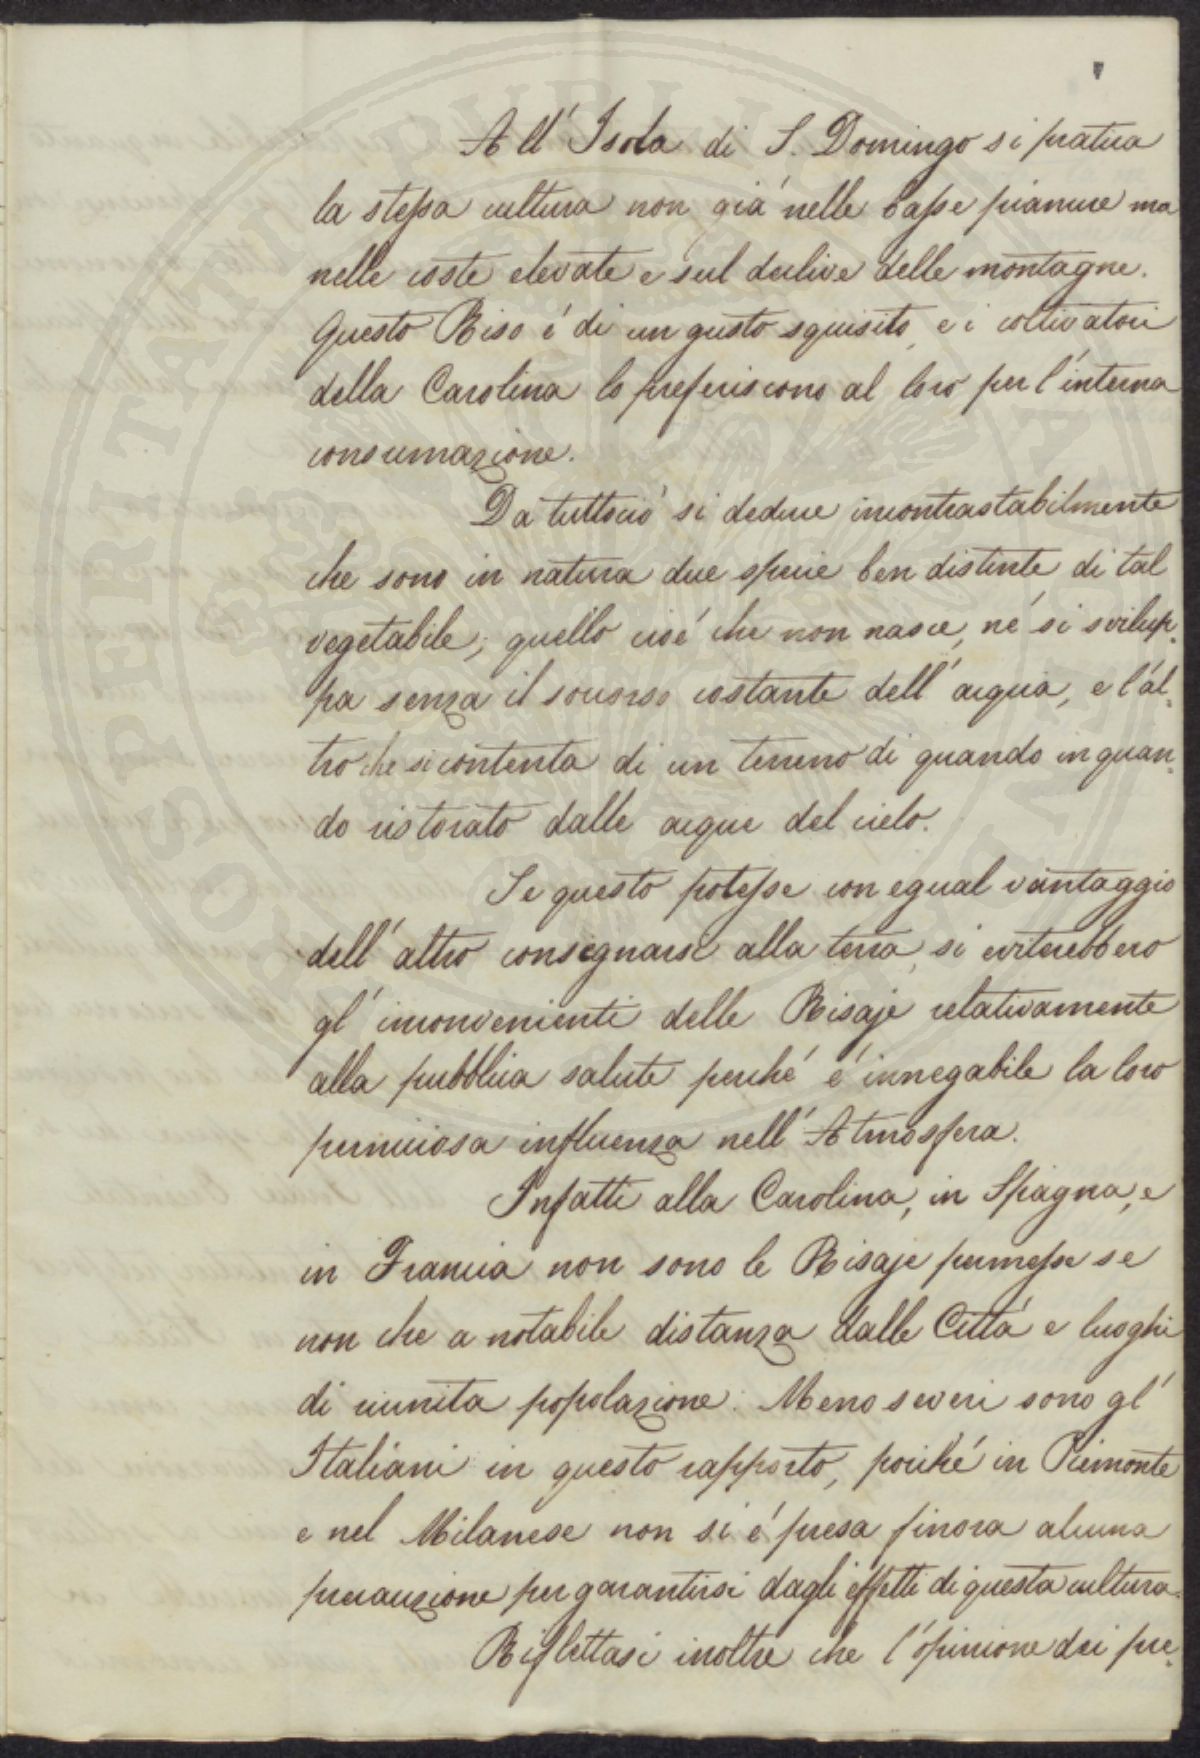 All' Isola di S. Domingo si pratica
la stessa cultura non già nelle basse pianure ma
nelle coste elevate e sul declive delle montagne.
Questo Riso é di un gusto squisito, e i coltivatori
della Carolina lo preferiscono al loro per l'interna
consumazione.
Da tuttociò si deduce incontrastabilmente
che sono in natura due specie ben distinte di tal
vegetabile; quello cioé che non nasce, né si svilup-
pa senza il soccorso costante dell' acqua, e l'al-
tro che si contenta di un terreno di quando in quan-
do ristorato dalle acque del cielo.
Se questo potesse con egual vantaggio
dell' altro consegnarsi alla terra, si eviterebbero
gl' inconvenienti delle Risaje relativamente
alla pubblica salute perché é innegabile la loro
perniciosa influenza nell' Atmosfera.
Infatti alla Carolina, in Spagna, e
in Francia non sono le Risaje permesse se
non che a notabile distanza dalle Cittá e luoghi
di riunita popolazione. Meno severi sono gl'
Italiani in questo rapporto, poiché in Piemonte
e nel Milanese non si é presa finora alcuna
precauzione per garantirsi dagli effetti di questa cultura.
Riflettasi inoltre che l'opinione dei pre-